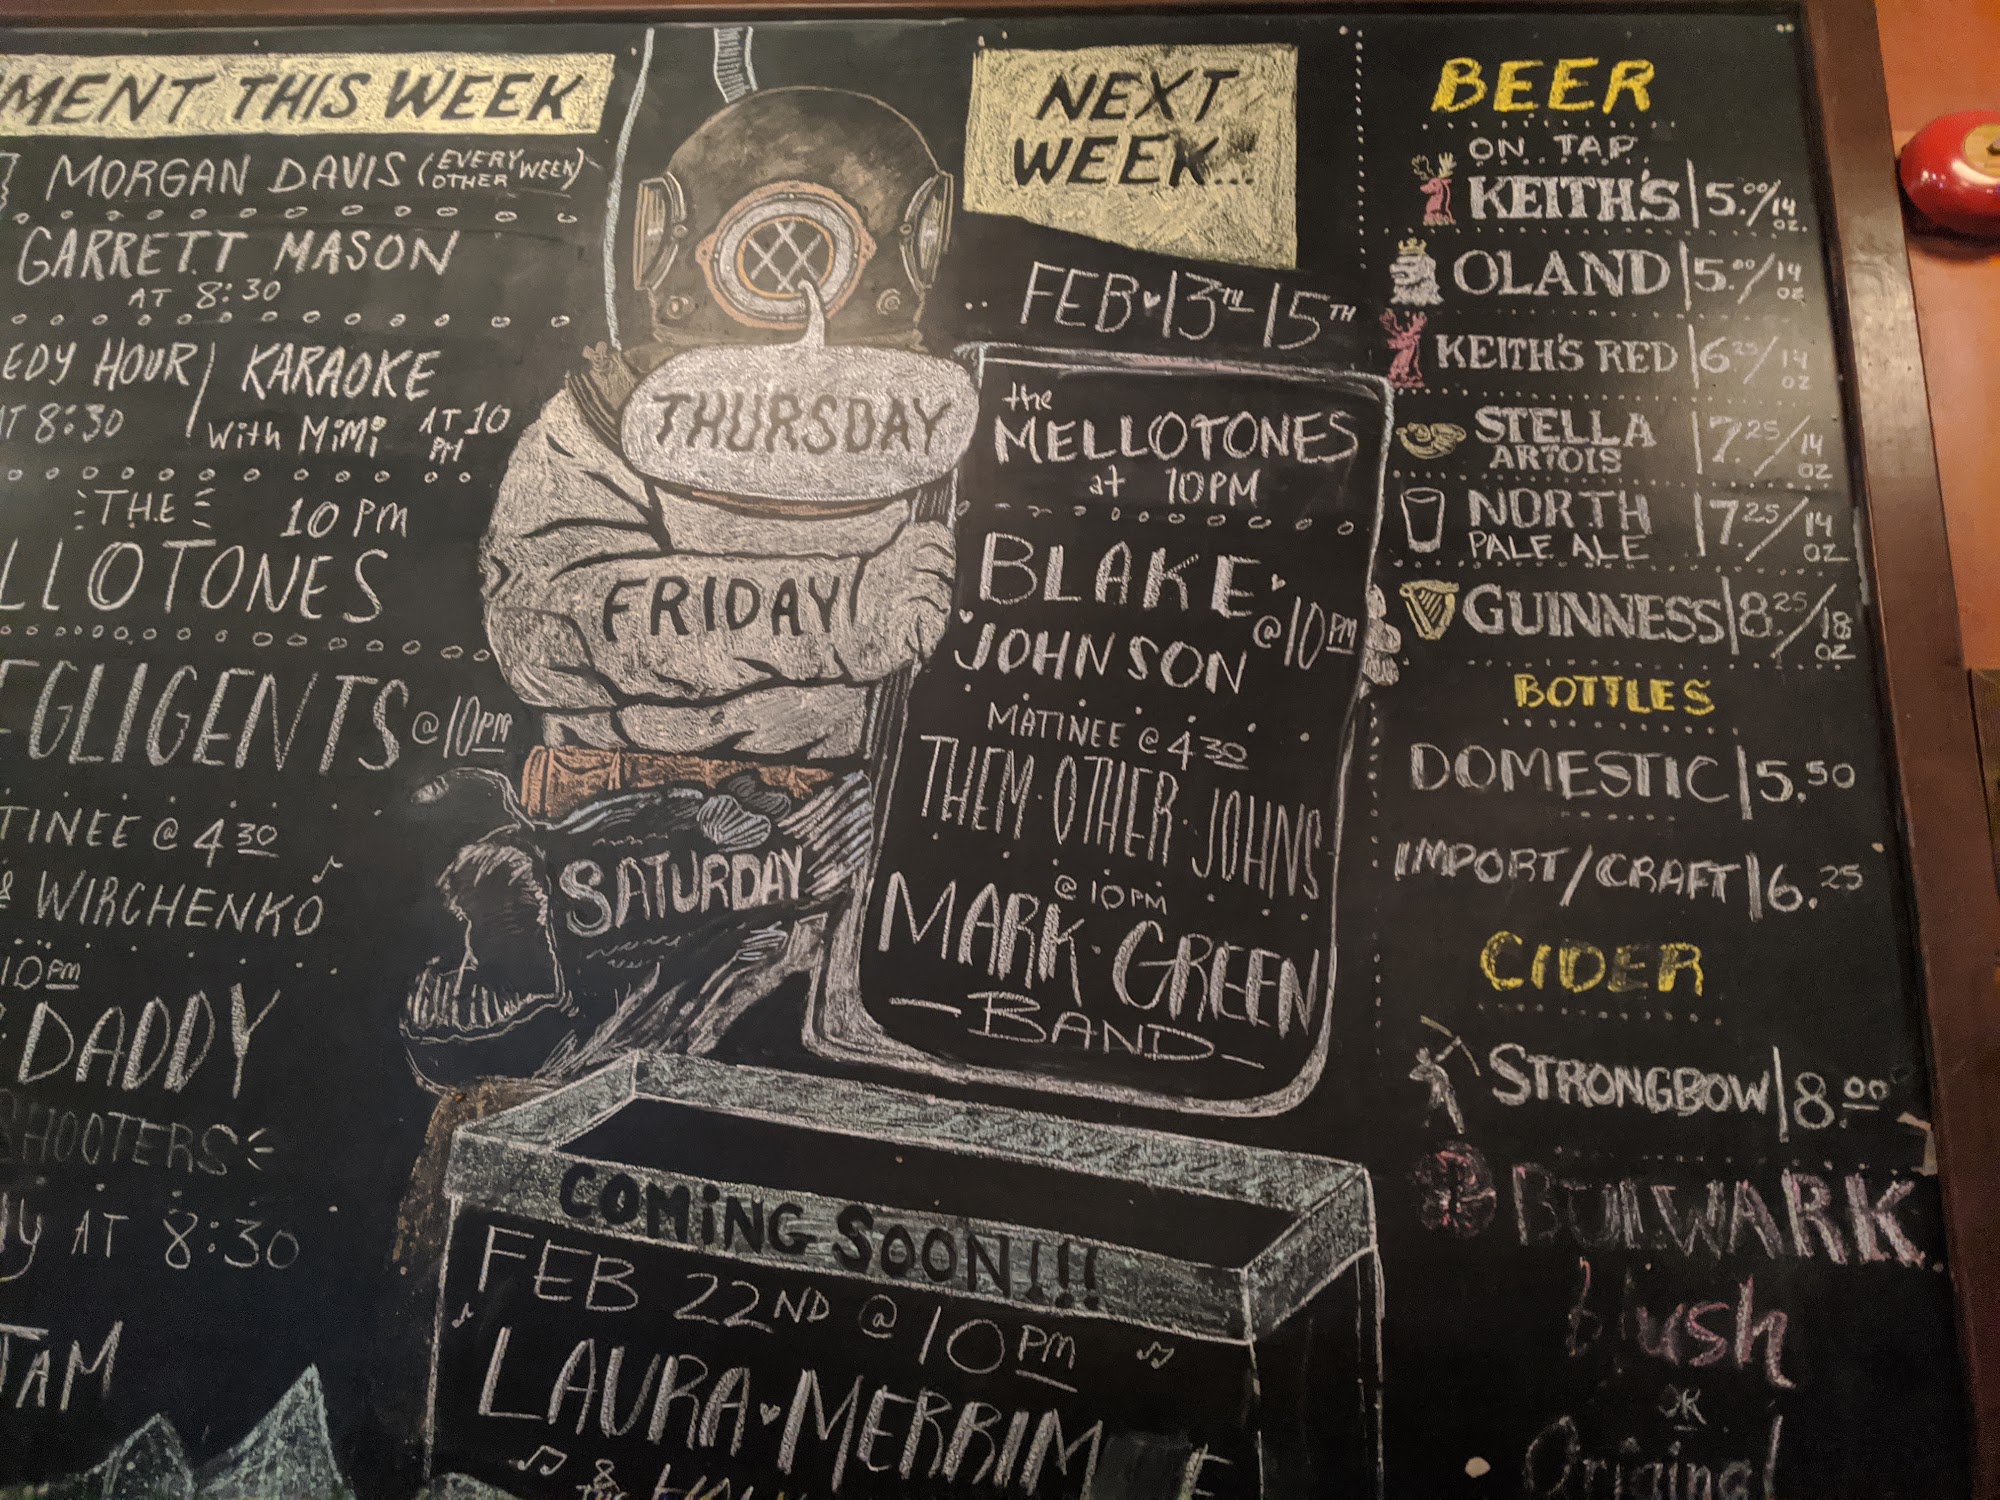 MENT THIS WEEK
MORGAN DAVIS (EVERY OTHER WEEK)
GARRETT MASON
AT 8:30
EDY HOUR
AT 8:30
KARAOKE
With MiMi AT 10 PM
THE 10 PM
LLOTONES
EGLIGENTS @ 10PM
TINEE @ 430
& WIRCHENKO
10PM
DADDY
SHOOTERS
AT 8:30
TAM
THURSDAY
FRIDAY
SATURDAY
NEXT
WEEK...
FEB 13TH-15TH
the
MELLOTONES
at 10PM
BLAKE
JOHNSON @10PM
MATINEE @ 430
THEM OTHER JOHNS
@ 10PM
MARK GREEN
-BAND-
COMiNG SOON!!!
FEB 22ND @ 10PM
LAURA MERRIM
&
BEER
ON TAP
KEITH'S | 5.00/14 OZ.
OLAND | 5.00/14 OZ
KEITH'S RED | 6.25/14 OZ
STELLA
ARTOIS | 7.25/14 OZ
NORTH
PALE ALE | 7.25/14 OZ
GUINNESS | 8.25/18 OZ
BOTTLES
DOMESTIC | 5.50
IMPORT/CRAFT | 6.25
CIDER
STRONGBOW | 8.00
BULWARK
blush
OR
Original